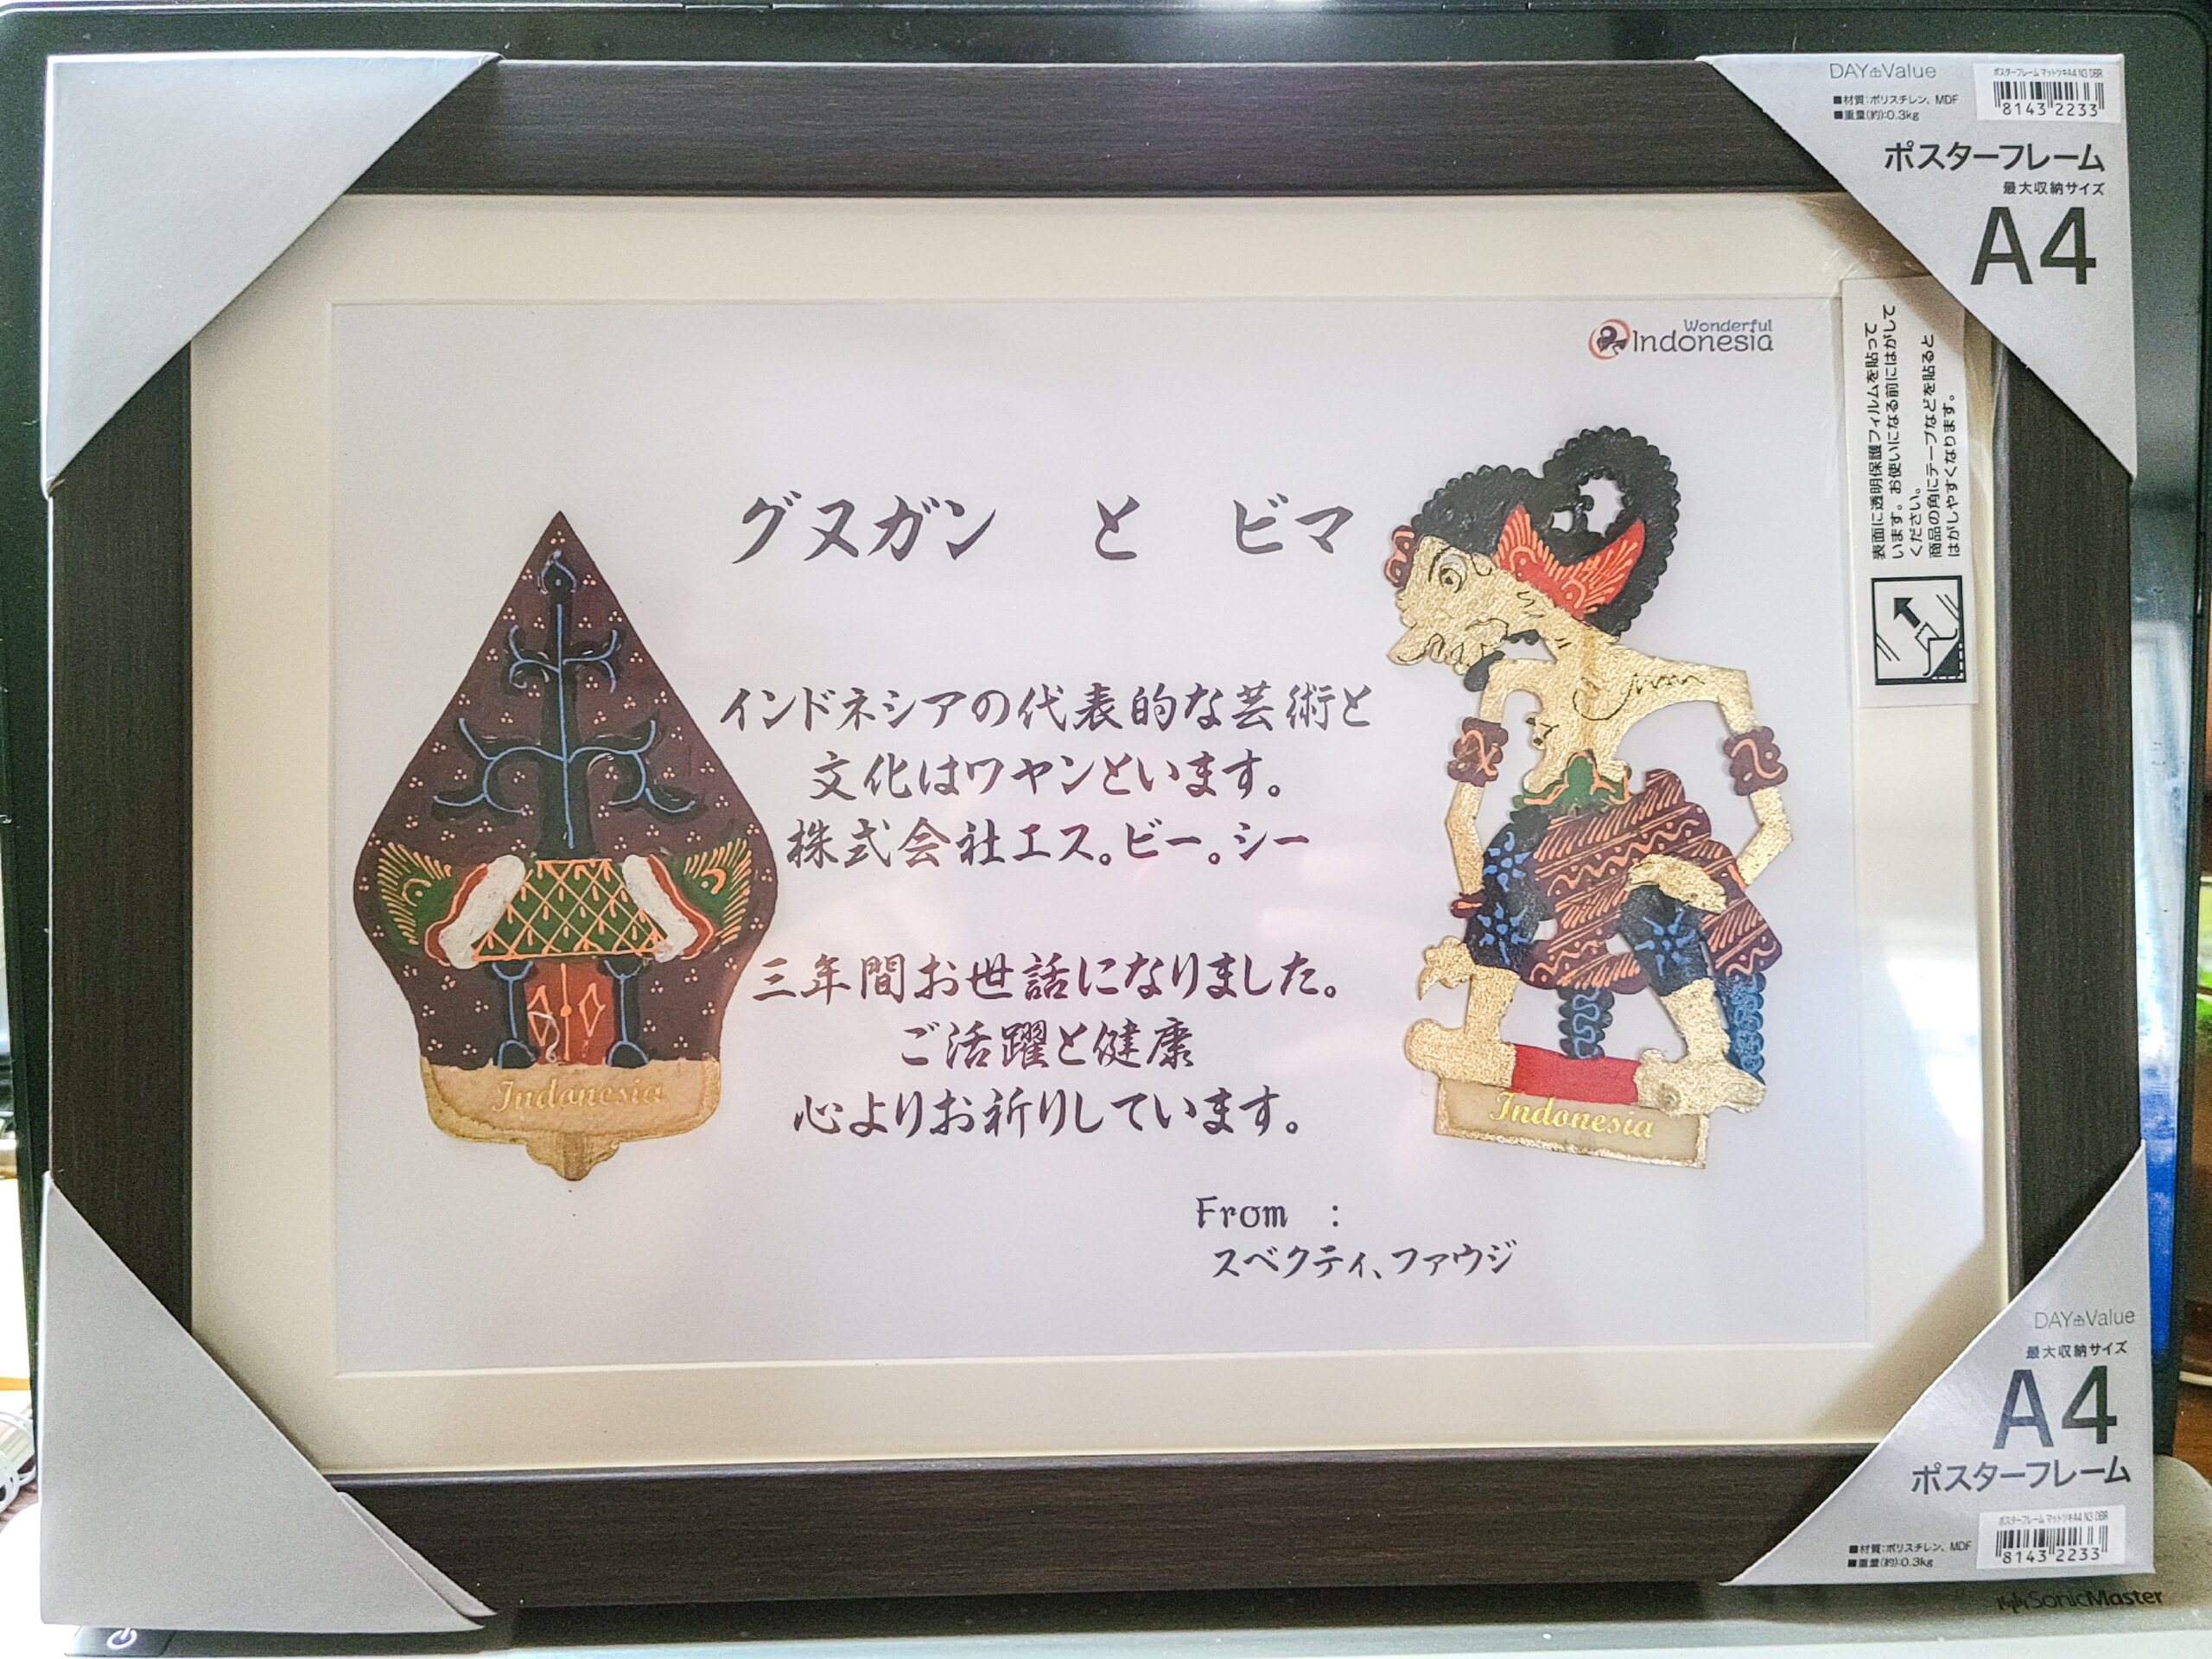 DAY Value
ポスターフレーム マットツキA4 N3 DBR
■材質:ポリスチレン、MDF
■重量(約):0.3kg
8143 2233
ポスターフレーム
最大収納サイズ
A4
表面に透明保護フィルムを貼って
います。お使いになる前にはがして
ください。
商品の角にテープなどを貼ると
はがしやすくなります。
Wonderful
Indonesia
グヌガン と ビマ
インドネシアの代表的な芸術と
文化はワヤンといます。
株式会社エス。ビー。シー
三年間お世話になりました。
ご活躍と健康
心よりお祈りしています。
Indonesia
Indonesia
From :
スベクティ、ファウジ
DAY Value
最大収納サイズ
A4
ポスターフレーム
ポスターフレーム マットツキA4 N3 DBR
■材質:ポリスチレン、MDF
■重量(約):0.3kg
8143 2233
SonicMaster